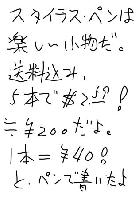 スタイラス・ペンは
楽し〜小物だ。
送料込み、
5本で$2是!
≒¥200だよ。
1本=¥40!
と、ペンで書いたよ